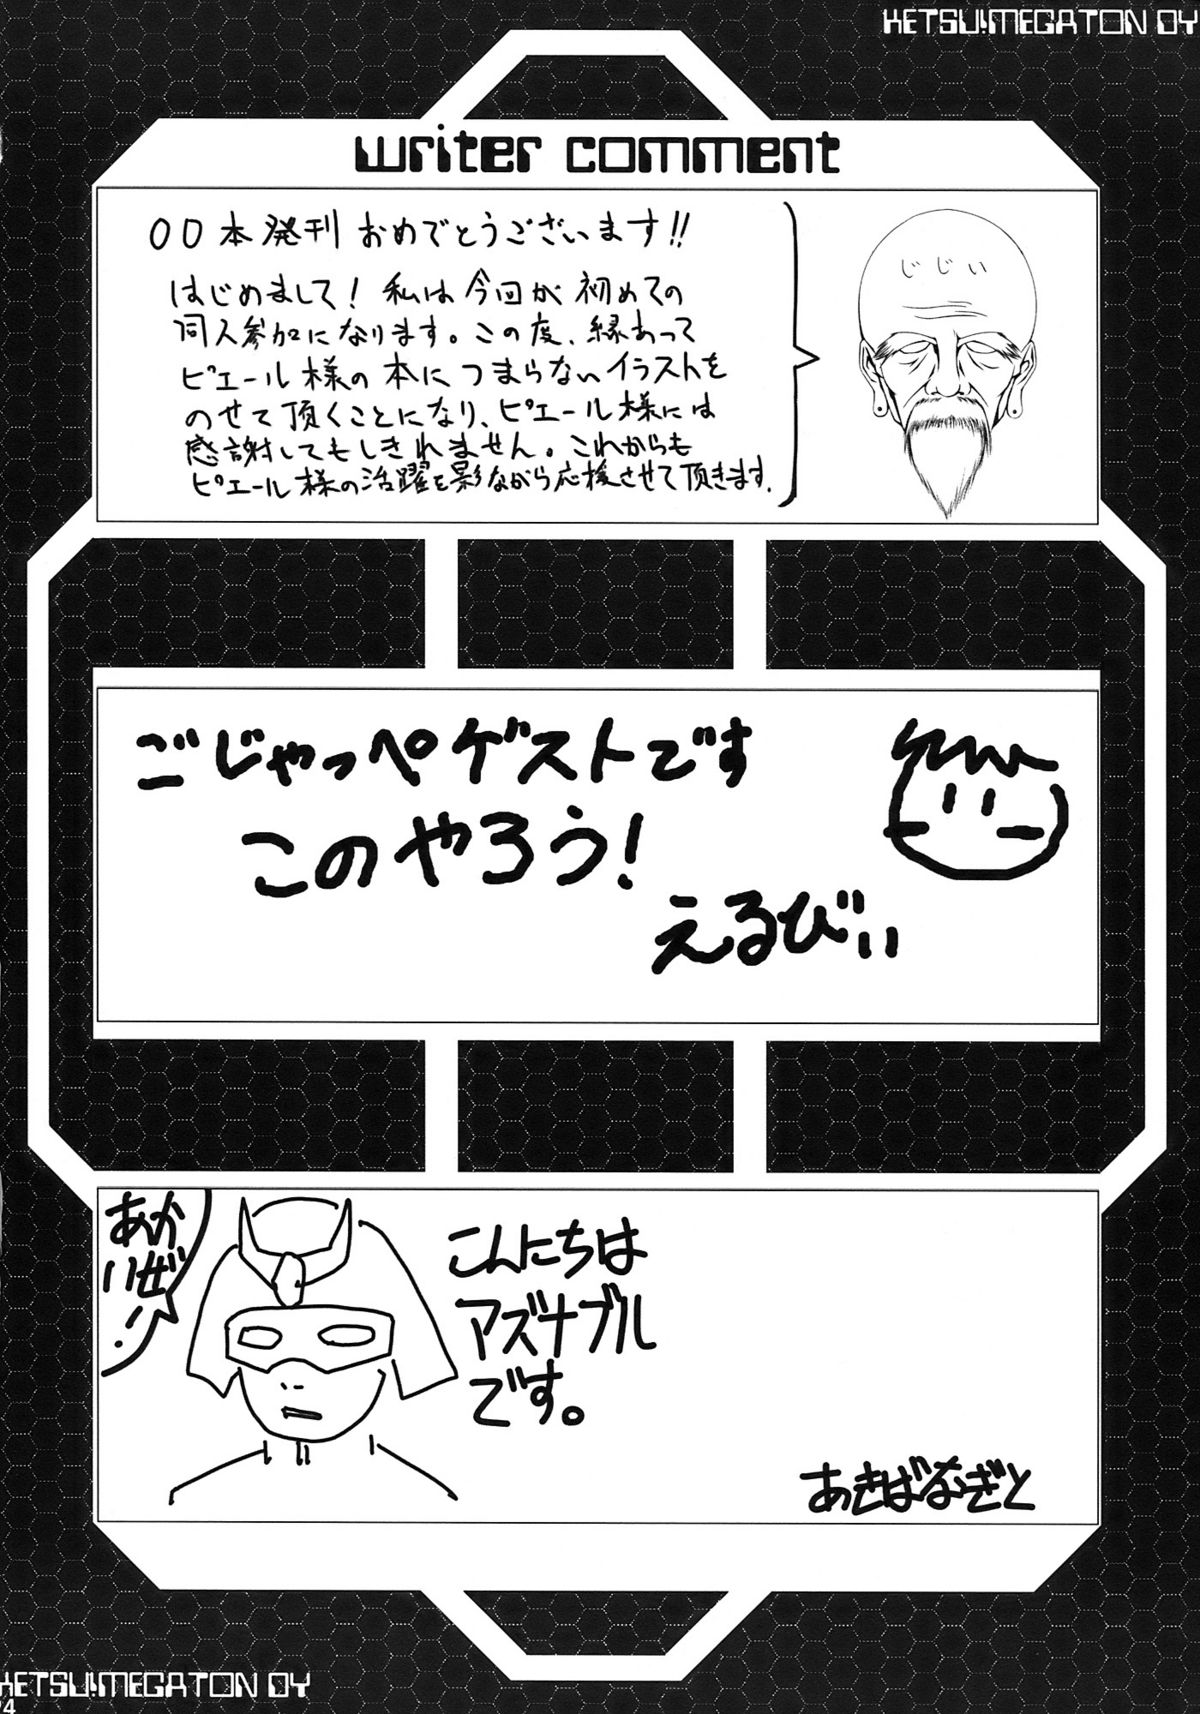 KETSU!MEGATON 0Y
writer comment
OO本発刊 おめでとうございます!!
はじめまして! 私は今回が初めての
同人参加になります。この度、縁あって
ピエール様の本につまらないイラストを
のせて頂くことになり、ピエール様には
感謝してもしきれません。これからも
ピエール様の活躍を影ながら応援させて頂きます.
じじい
ごじゃっぺゲストです
このやろう!
えるびぃ
あか
いぜ
!!
こんにちは
アズナブル
です。
あきばなぎと
KETSU!MEGATON 0Y